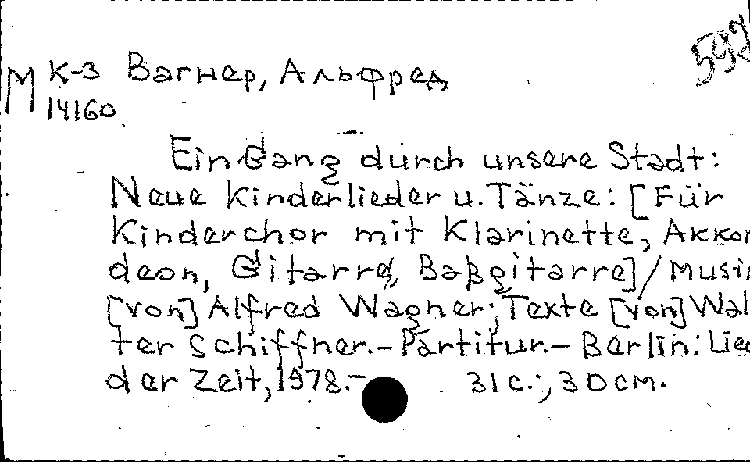 М К-3 Вагнер, Альфред 592
14160
Ein Gang durch unsere Stadt:
Neue Kinderlieder u. Tänze: [Für
Kinderchor mit Klarinette, Akkor
deon, Gitarre, Baßgitarre] / Musi
[von] Alfred Wagner; Texte [von] Wal
ter Schiffner.- Partitur.- Berlin: Lied
der Zeit, 1978.- 31 с.; 30 см.